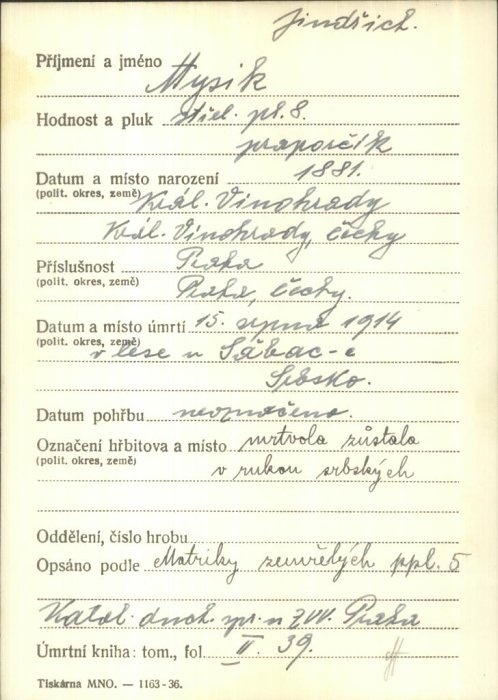 Jindřich.
Příjmení a jméno Mysik
Hodnost a pluk střel. pl. 8.
praporčík
Datum a místo narození 1881.
(polit. okres, země) Král. Vinohrady
Král. Vinohrady, Čechy
Příslušnost Praha
(polit. okres, země) Praha, Čechy.
Datum a místo úmrtí 15. srpna 1914
(polit. okres, země) v lese u Šábac-e
Srbsko.
Datum pohřbu neoznačeno.
Označení hřbitova a místo mrtvola zůstala
(polit. okres, země) v rukou srbských
Oddělení, číslo hrobu
Opsáno podle Matriky zemřelých ppl. 5
Katol. duch. spr. u ZVV. Praha
Úmrtní kniha: tom., fol. II. 39.
Tiskárna MNO. — 1163-36.